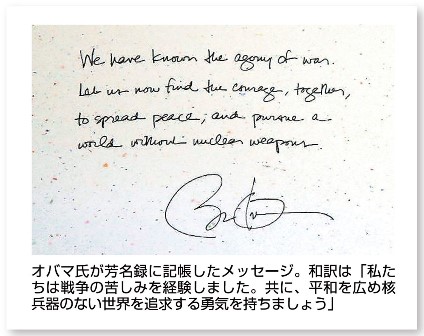 We have known the agony of war.
Let us now find the courage, together,
to spread peace, and pursue a
world without nuclear weapons.
オバマ氏が芳名録に記帳したメッセージ。和訳は「私た
ちは戦争の苦しみを経験しました。共に、平和を広め核
兵器のない世界を追求する勇気を持ちましょう」